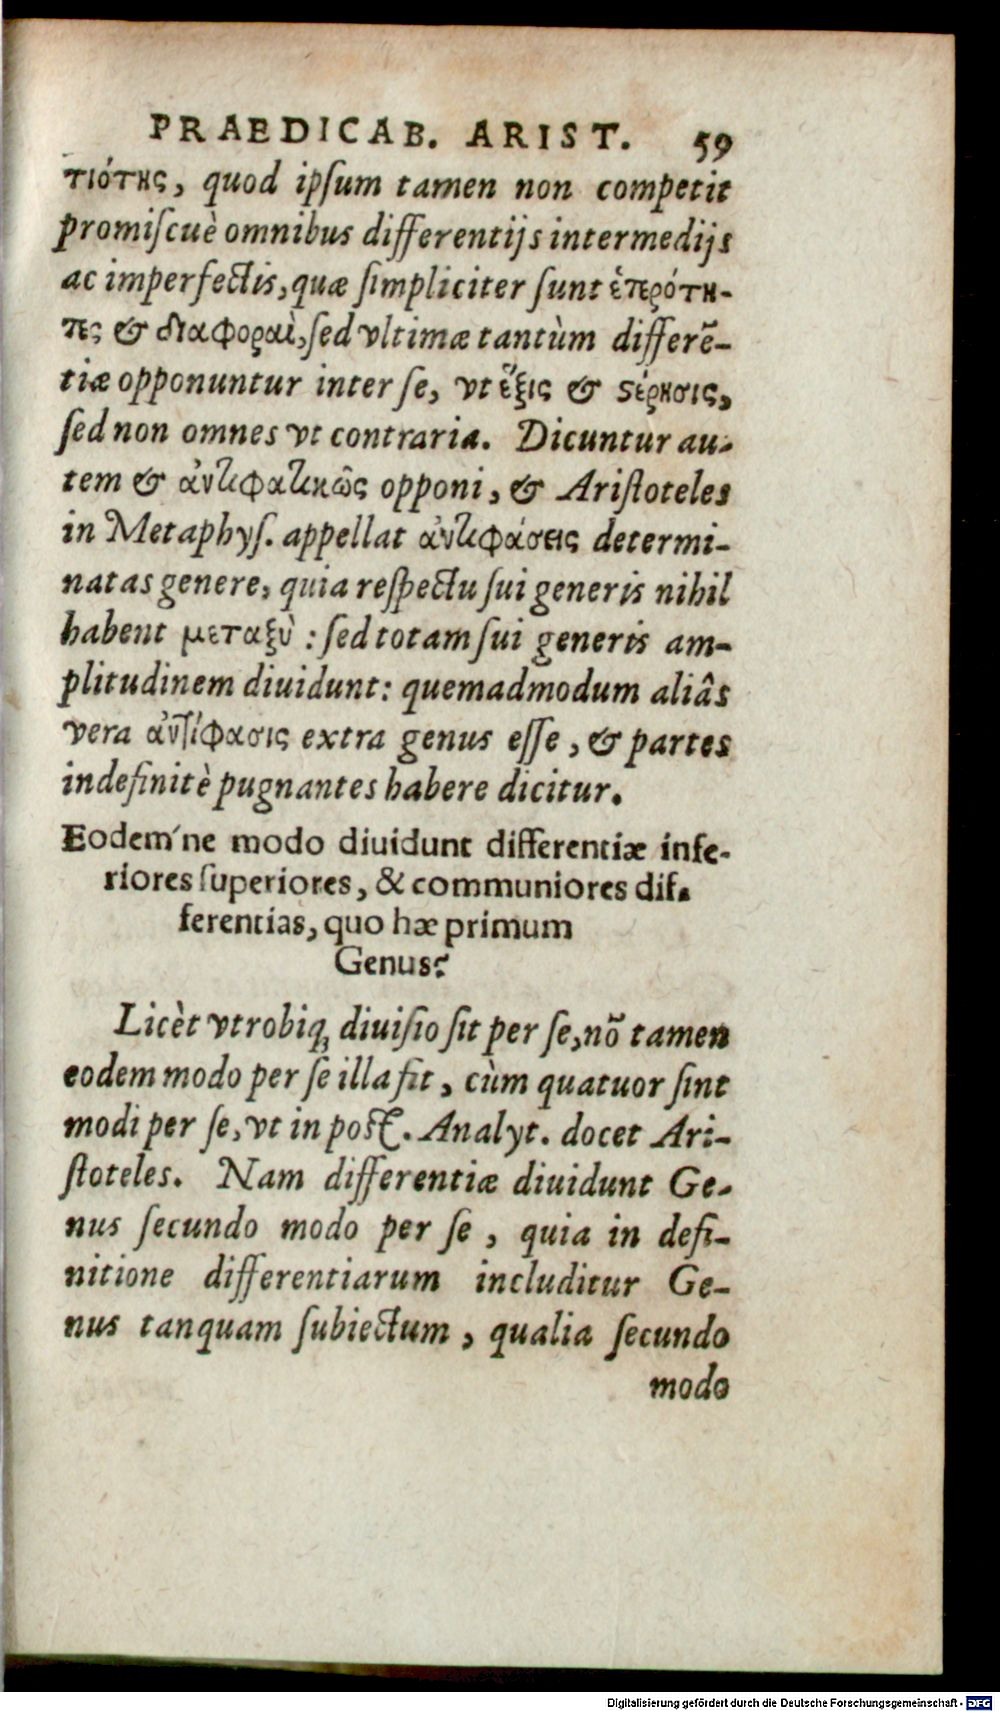 PRAEDICAB. ARIST. 59
τιότης, quod ipſum tamen non competit
promiſcuè omnibus differentijs intermedijs
ac imperfectis, quæ ſimpliciter ſunt ἑτερότη-
τες & διαφοραὶ, ſed vltimæ tantùm differē-
tiæ opponuntur inter ſe, vt ἕξις & ϛέρησις,
ſed non omnes vt contraria. Dicuntur au-
tem & ἀντιφατικῶς opponi, & Ariſtoteles
in Metaphyſ. appellat ἀντιφάσεις determi-
natas genere, quia reſpectu ſui generis nihil
habent μεταξὺ : ſed totam ſui generis am-
plitudinem diuidunt: quemadmodum aliâs
vera ἀντίφασις extra genus eſſe, & partes
indefinitè pugnantes habere dicitur.
Eodem´ne modo diuidunt differentiæ infe-
riores ſuperiores, & communiores dif-
ferentias, quo hæ primum
Genus?
Licèt vtrobiq́; diuiſio ſit per ſe, nō tamen
eodem modo per ſe illa fit, cùm quatuor ſint
modi per ſe, vt in poſt. Analyt. docet Ari-
ſtoteles. Nam differentiæ diuidunt Ge-
nus ſecundo modo per ſe, quia in defi-
nitione differentiarum includitur Ge-
nus tanquam ſubiectum, qualia ſecundo
modo
Digitalisierung gefördert durch die Deutsche Forschungsgemeinschaft - DFG